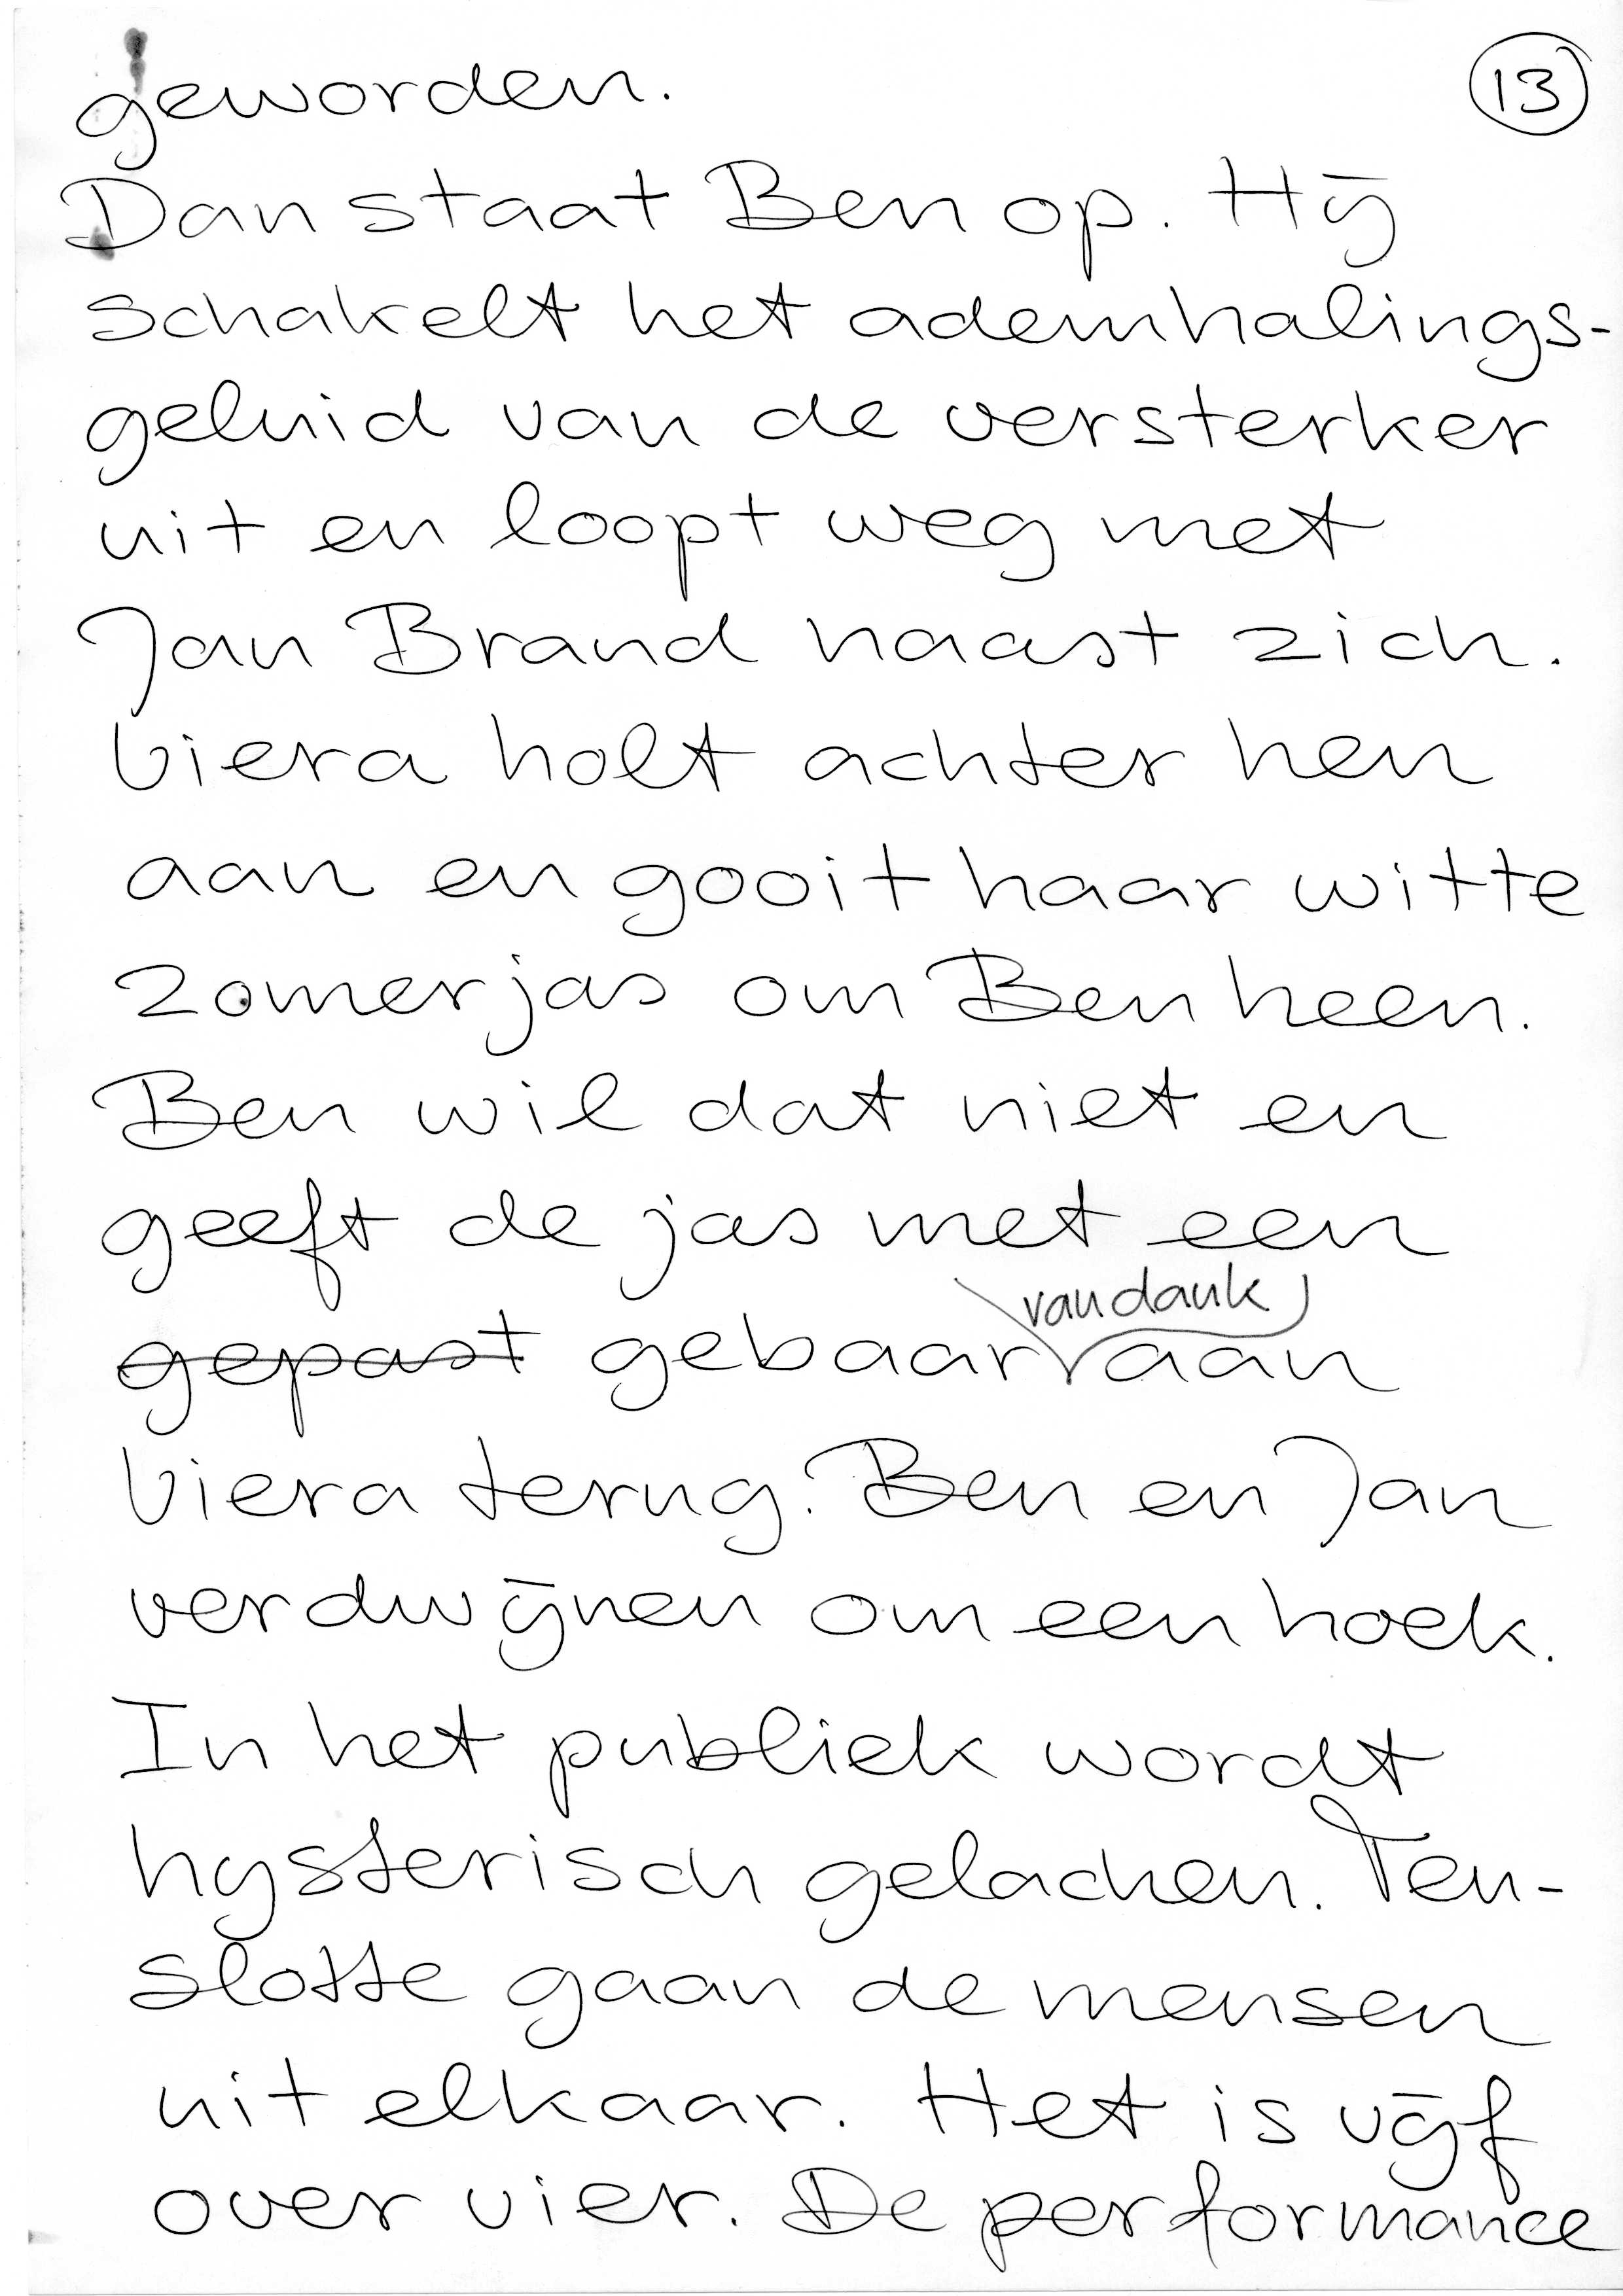 geworden.
13
Dan staat Ben op. Hij
schakelt het ademhalings-
geluid van de versterker
uit en loopt weg met
Jan Brand naast zich.
Viera holt achter hen
aan en gooit haar witte
zomerjas om Ben heen.
Ben wil dat niet en
geeft de jas met een
van dank
gepast gebaar aan
Viera terug. Ben en Jan
verdwijnen om een hoek.
In het publiek wordt
hysterisch gelachen. Ten-
slotte gaan de mensen
uit elkaar. Het is vijf
over vier. De performance